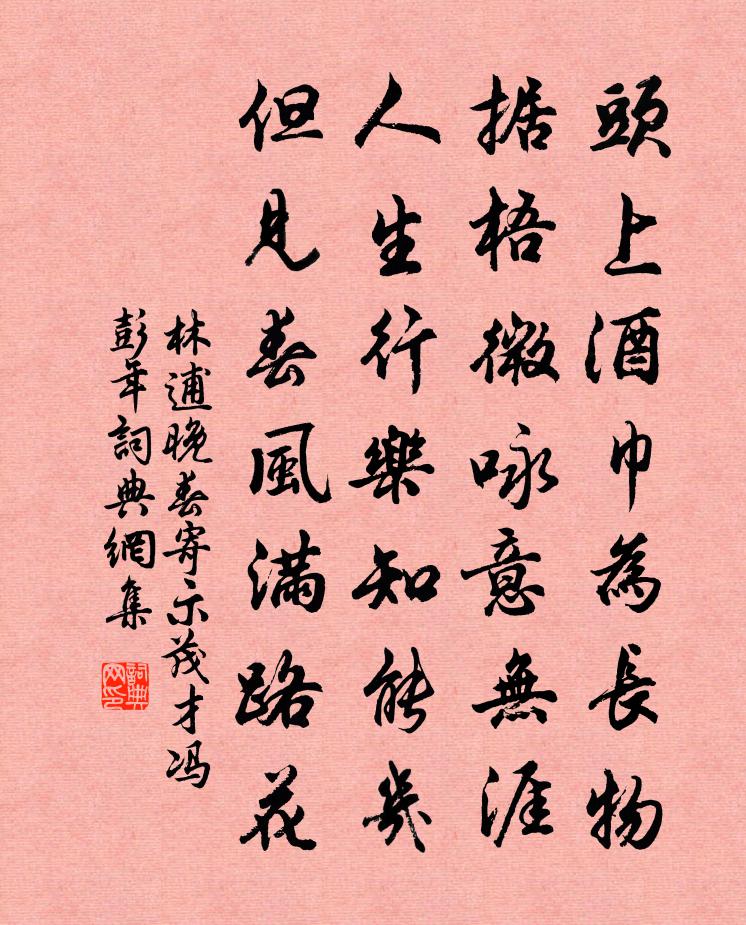 頭上酒巾為長物
据梧微咏意無涯
人生行樂知能幾
但見春風滿路花
林逋晚春寄示茂才冯
彭年詞典網集
詞典網印